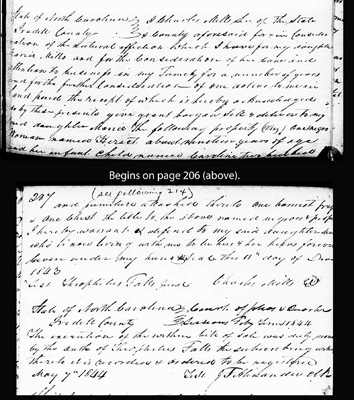 State of North Carolina } I Charles Mills Sr of the State
Iredell County } & County aforesaid for & in Consider
ation of the natural affection which I have for my daughter
Mills and for the Consideration of her care and
attention to business in my family for a number of years
and for the further Consideration of one dollar to me in
hand paid the receipt of which is hereby acknowledged
by these presents give grant bargain sell & deliver to my
said daughter the following property (Viz) One negro
Woman named about nineteen years of age
and her infant Child named Caroline two
Begins on page 206 (above).
207 (all following 214)
and furniture attached thereto one
& one Chest the title to the above named
I hereby warrant & defend to my said daughter
who is now living with me to her & her heirs forever
Given under my hand & Seal this 11th day of
1843
Test Theophilus Falls Charles Mills
State of North Carolina } Court of pleas & Quarter
Iredell County } Sessions Term 1844
The execution of the within bill of Sale was duly
by the oath of Theophilus Falls the subscribing
thereto it is recorded & ordered to be registered
May 7th 1844 Test J F Alexander Clk